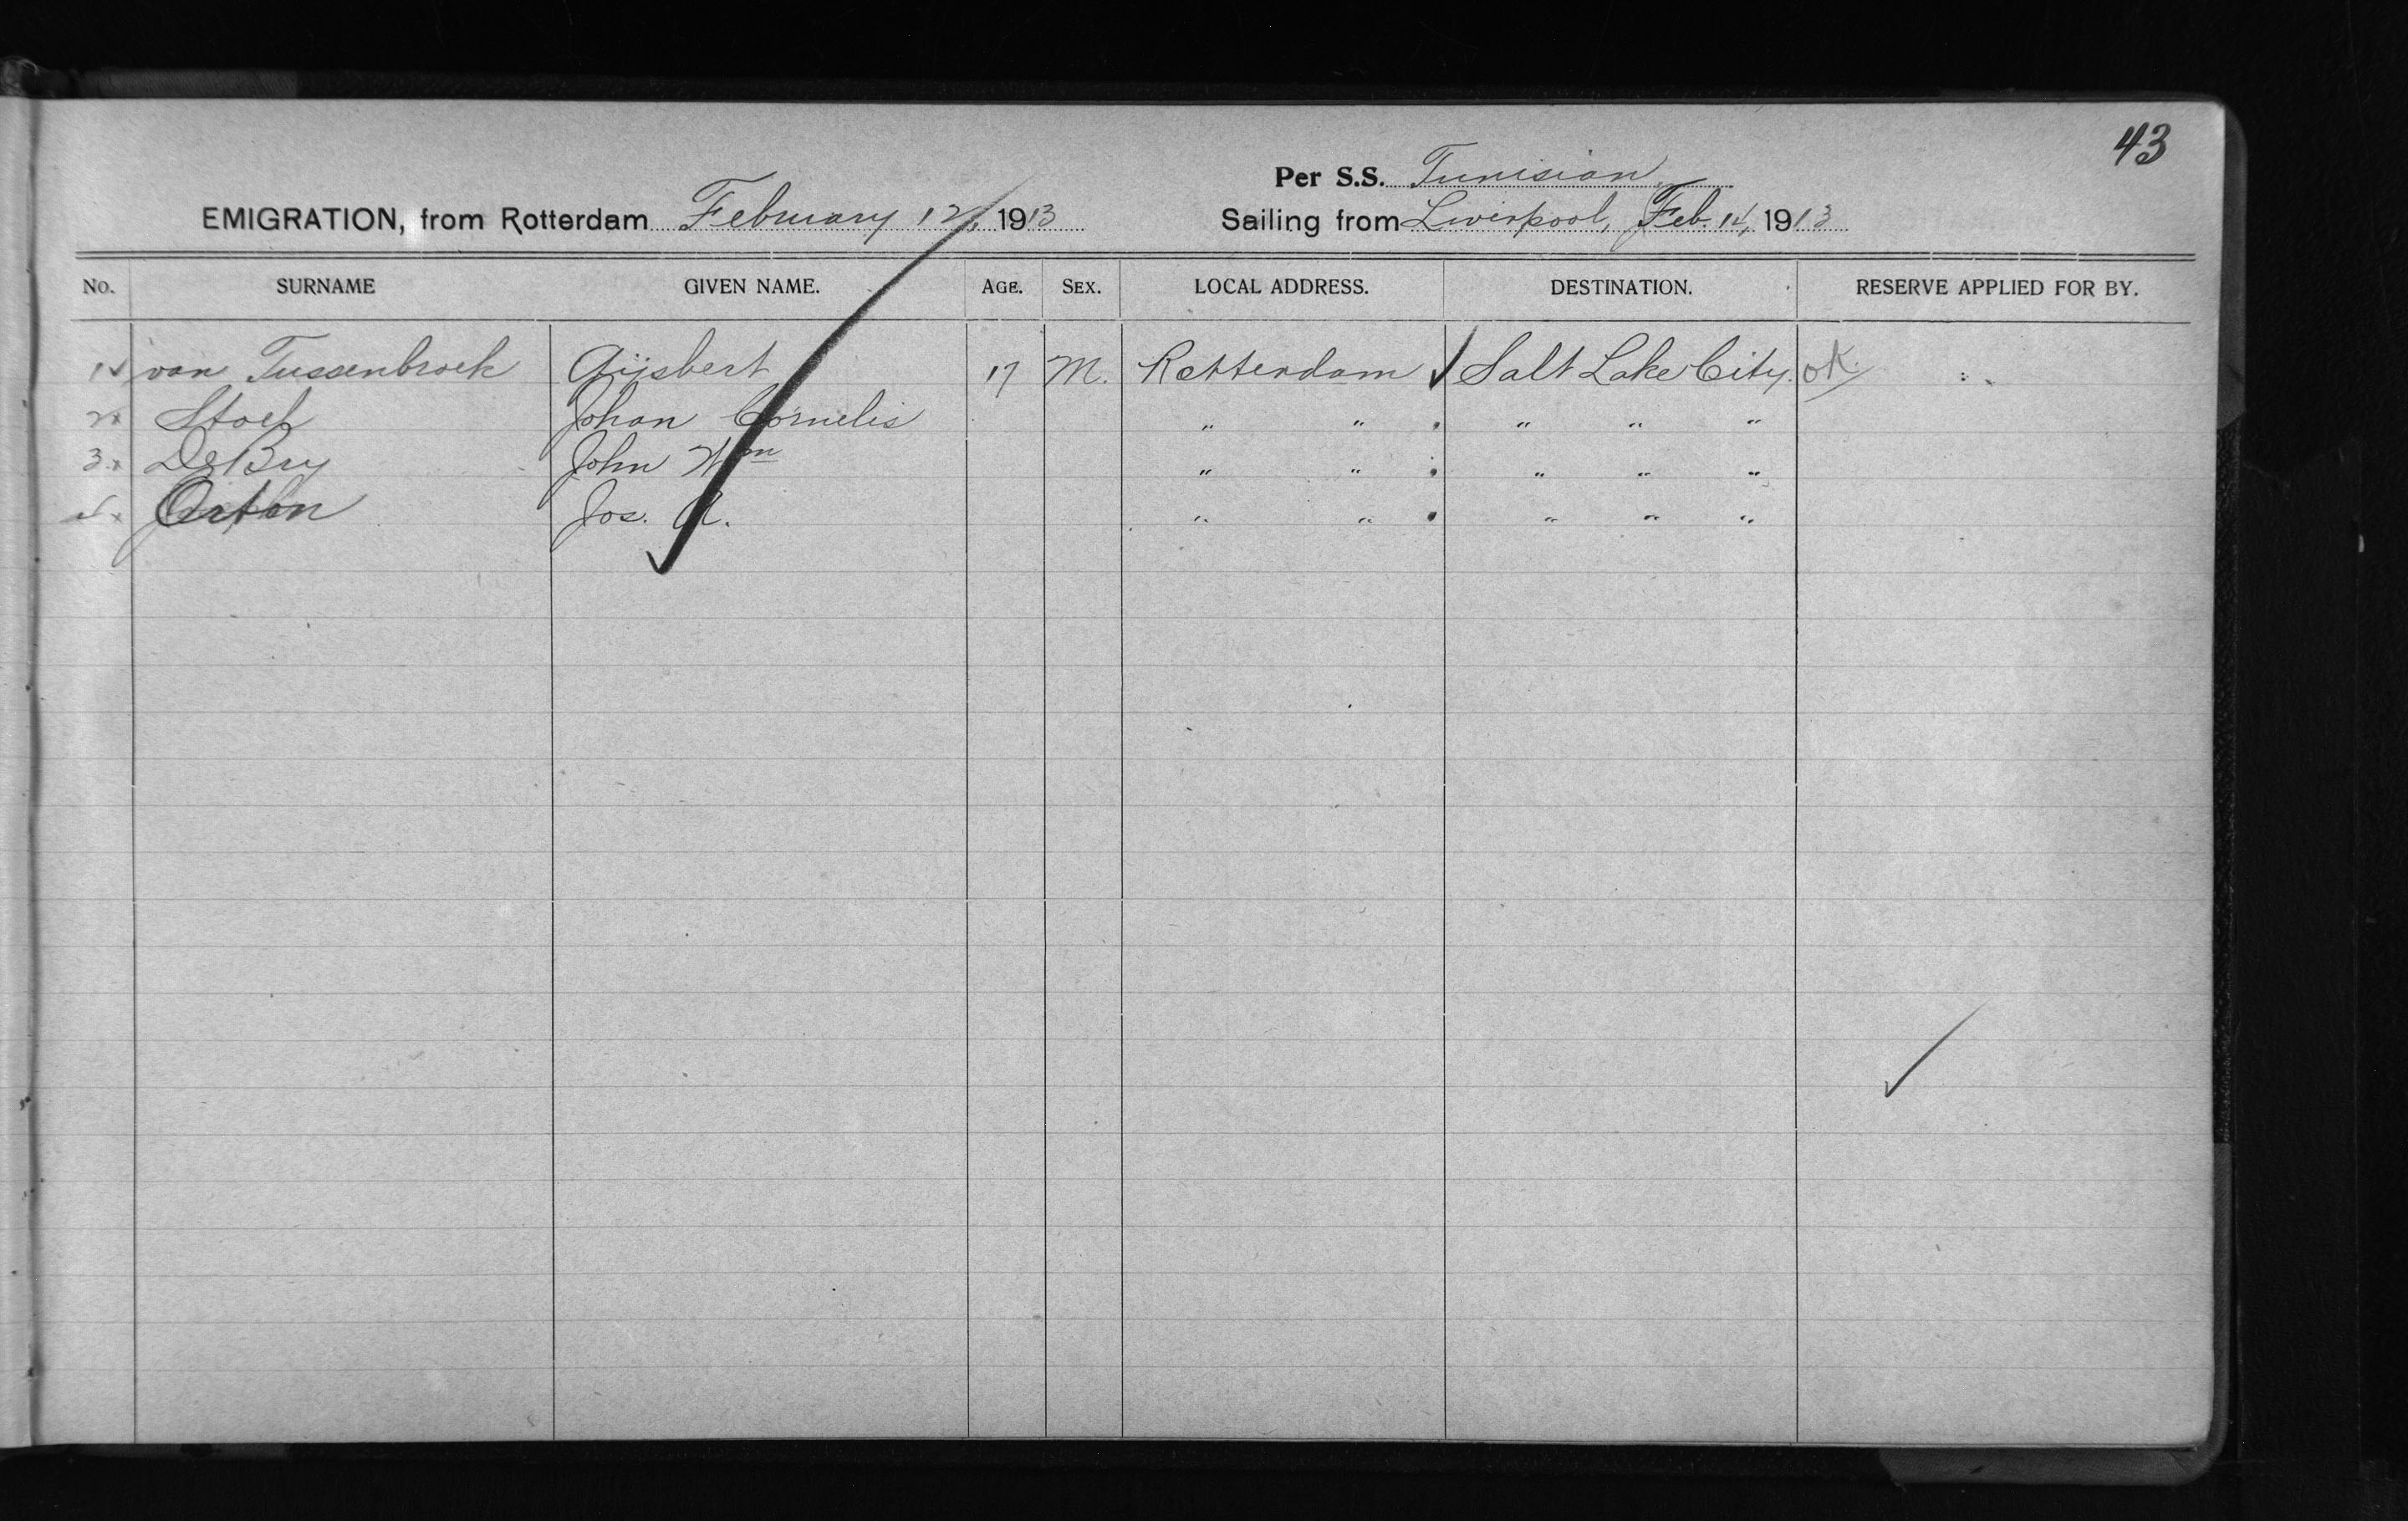 43
Per S.S. Tunisian
EMIGRATION, from Rotterdam February 12, 1913 Sailing from Liverpool, Feb. 14, 1913
No. SURNAME GIVEN NAME. AGE. SEX. LOCAL ADDRESS. DESTINATION. RESERVE APPLIED FOR BY.
1 van Tussenbroek Gijsbert 17 M. Rotterdam Salt Lake City. OK.
2 Stoel Johan Cornelis " " " " "
3 DeBry John Wm " " " " "
4 Orton Jos. A. " " " " "